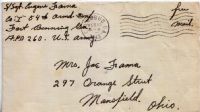 S/Sgt. Eugene Frama
Co. I 54th Armd.
Fort Benning Ga.
A.P.O. 260. U.S. Army
Free
mail.
Mrs. Joe Frama
297 Orange Street
Mansfield,
Ohio.